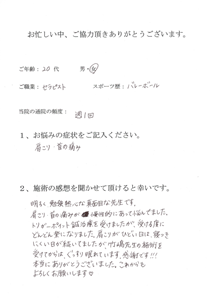 お忙しい中、ご協力頂きありがとうございます。
ご年齢：20代 男・女
ご職業：セラピスト スポーツ歴：バレーボール
当院の通院の頻度： 週1回
1、お悩みの症状をご記入ください。
肩こり・首の痛み
2、施術の感想を聞かせて頂けると幸いです。
明るく勉強熱心な真面目な先生です。
肩こり・首の痛みが慢性的にあって悩んでました。
トリガーポイント鍼治療を受けましたが、受ける度に
どんどん楽になりました。肩こりがひどい日は、寝つき
にくい日が続いてましたが、先生の施術を
受けてからは、ぐっすり眠れています。感謝です!!!
本当にありがとうございました。これからも
よろしくお願いします